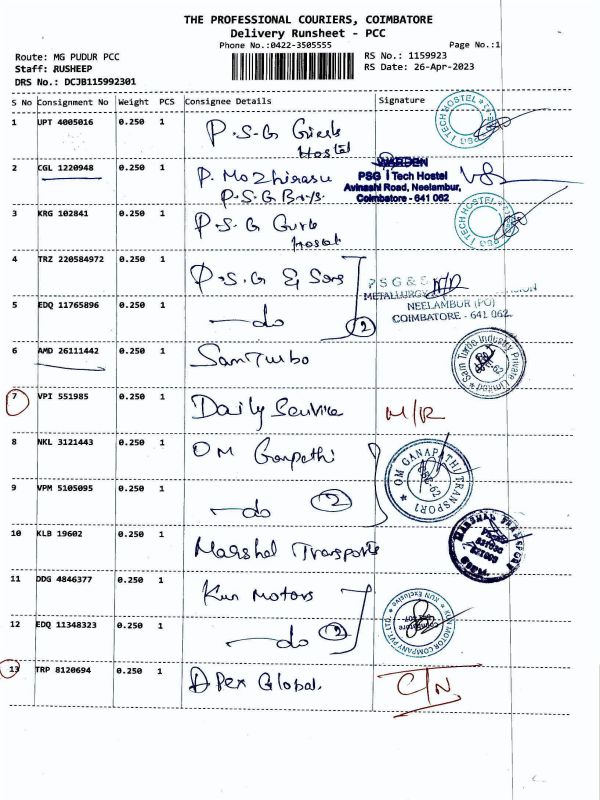 THE PROFESSIONAL COURIERS, COIMBATORE
Delivery Runsheet - PCC
Phone No.:0422-3505555
Page No.:1
Route: MG PUDUR PCC
RS No.: 1159923
Staff: RUSHEEP
RS Date: 26-Apr-2023
DRS No.: DCJB115992301
S No Consignment No Weight PCS Consignee Details Signature
1 UPT 4005016 0.250 1 P.S.G Girls
Hostel
PSG I TECH HOSTEL
2 CGL 1220948 0.250 1 P. Mozhirasu
P.S.G Boys.
WARDEN
PSG i Tech Hostel
Avinashi Road, Neelambur,
Coimbatore - 641 062
3 KRG 102841 0.250 1 P.S.G Girls
Hostel
PSG I TECH HOSTEL
4 TRZ 220584972 0.250 1 P.S.G & Sons
PSG &
METALLURGY
NEELAMBUR (PO)
COIMBATORE - 641 062.
5 EDQ 11765896 0.250 1 do 2
6 AMD 26111442 0.250 1 Sam Turbo
Sam Turbo Industry Private Limited
7 VPI 551985 0.250 1 Daily Service M/R
8 NKL 3121443 0.250 1 OM Ganpathi
OM GANAPATHI TRANSPORT
9 VPM 5105095 0.250 1 do 2
10 KLB 19602 0.250 1 Marshal Transports
MARSHAL TRANSPORT
11 DDG 4846377 0.250 1 Kun Motors
KUN MOTOR COMPANY PVT. LTD.
KUN Exclusive
12 EDQ 11348323 0.250 1 do 2
13 TRP 8120694 0.250 1 Apex Global. C/N